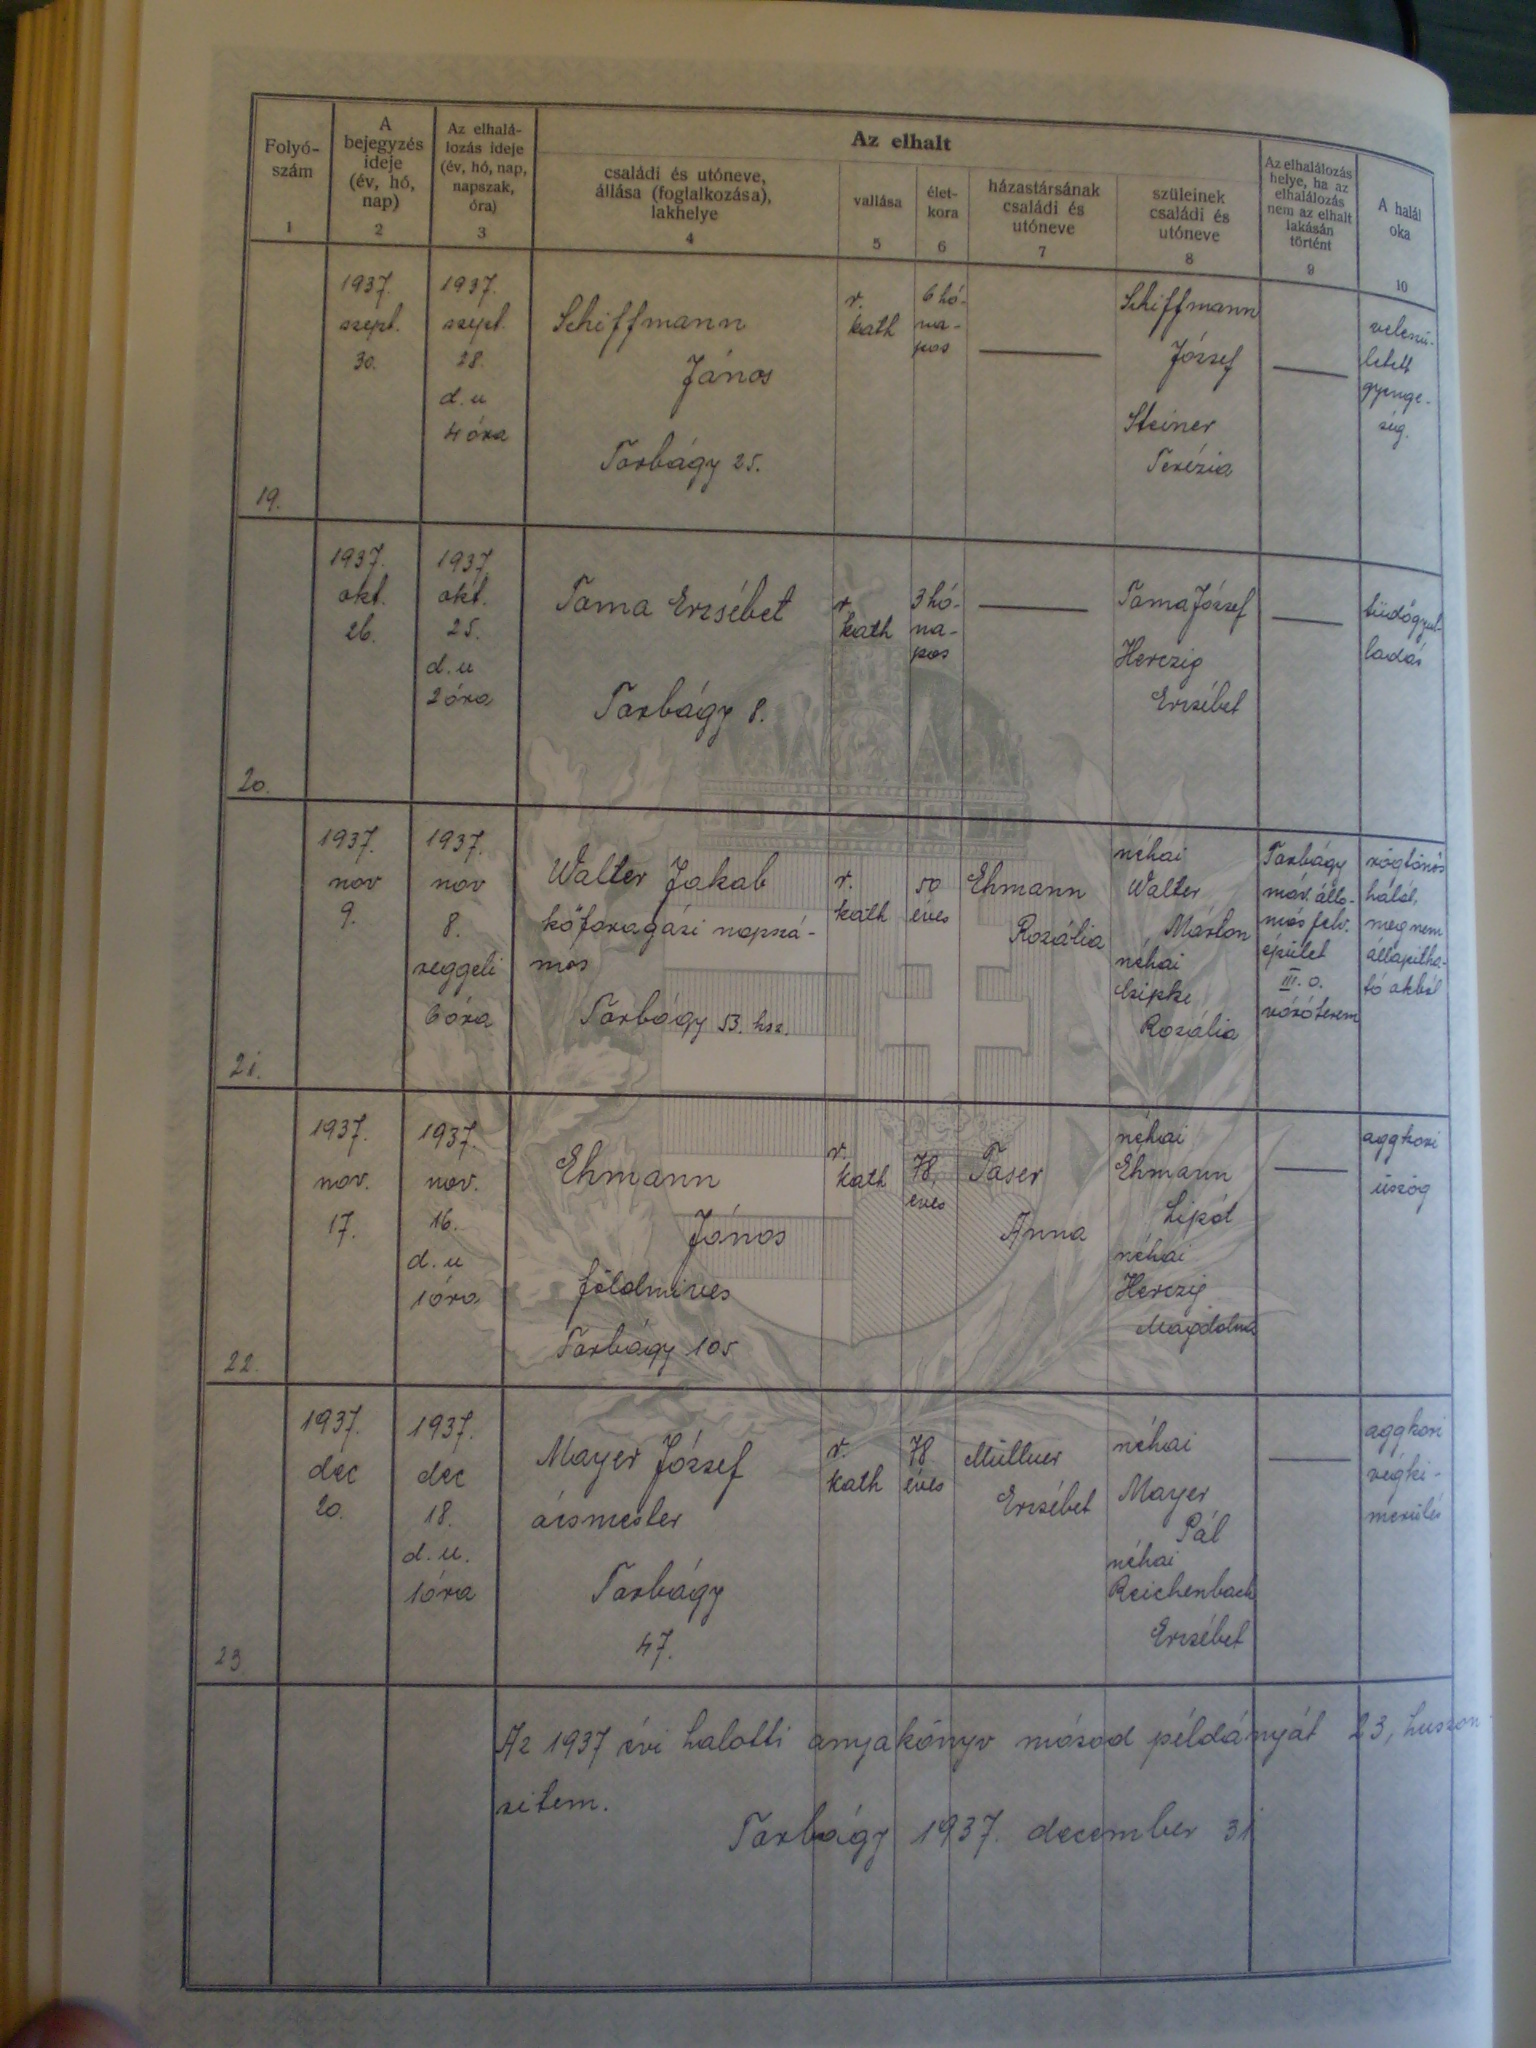 Folyó-
szám
1
A
bejegyzés
ideje
(év, hó,
nap)
2
Az elhalá-
lozás ideje
(év, hó, nap,
napszak,
óra)
3
Az elhalt
családi és utóneve,
állása (foglalkozása),
lakhelye
4
vallása
5
élet-
kora
6
házastársának
családi és
utóneve
7
szüleinek
családi és
utóneve
8
Az elhalálozás
helye, ha az
elhalálozás
nem az elhalt
lakásán
történt
9
A halál
oka
10
19.
1937.
szept.
30.
1937.
szept.
28.
d. u
4 óra
Schiffmann
János
Torbágy 25.
r.
kath
6 hó-
na-
pos
Schiffmann
József
Steiner
Terézia
velszü-
letett
gyenge-
ség.
20.
1937.
okt.
26.
1937.
okt.
25.
d. u
2 óra
Toma Erzsébet
Torbágy 8.
r.
kath
3 hó-
na-
pos
Toma József
Herczig
Erzsébet
tüdőgyul-
ladás
21.
1937.
nov
9.
1937.
nov
8.
reggeli
6 óra
Walter Jakab
kőfaragási napszá-
mos
Torbágy 53. hsz.
r.
kath
50
éves
Ehmann
Rozália
néhai
Walter
Márton
néhai
Rozália
Torbágy
máv. állo-
más felv.
épület
III. o.
váróterem
rögtönös
halál,
meg nem
állapitha-
tó okból
22.
1937.
nov.
17.
1937.
nov.
16.
d. u
1 óra
Ehmann
János
földmives
Torbágy 105
r.
kath
78
éves
Taser
Anna
néhai
Ehmann
Lipót
néhai
Herczig
Magdolna
aggkori
üszög
23
1937.
dec
20.
1937.
dec
18.
d. u.
1 óra
Mayer József
ácsmester
Torbágy
47.
r.
kath
78
éves
Müllner
Erzsébet
néhai
Mayer
Pál
néhai
Reichenbach
Erzsébet
aggkori
végki-
merülés
Az 1937 évi halotti anyakönyv másod példányát 23, huszon
zitem.
Torbágy 1937. december 31